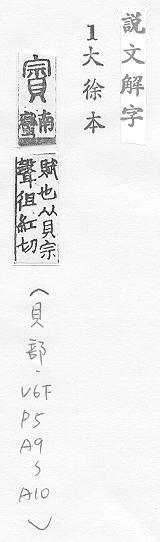 説文解字
1大徐本
賨
南蠻
賦也从貝宗
聲徂紅切
(貝部·V6F
P5
A9
S
A10)